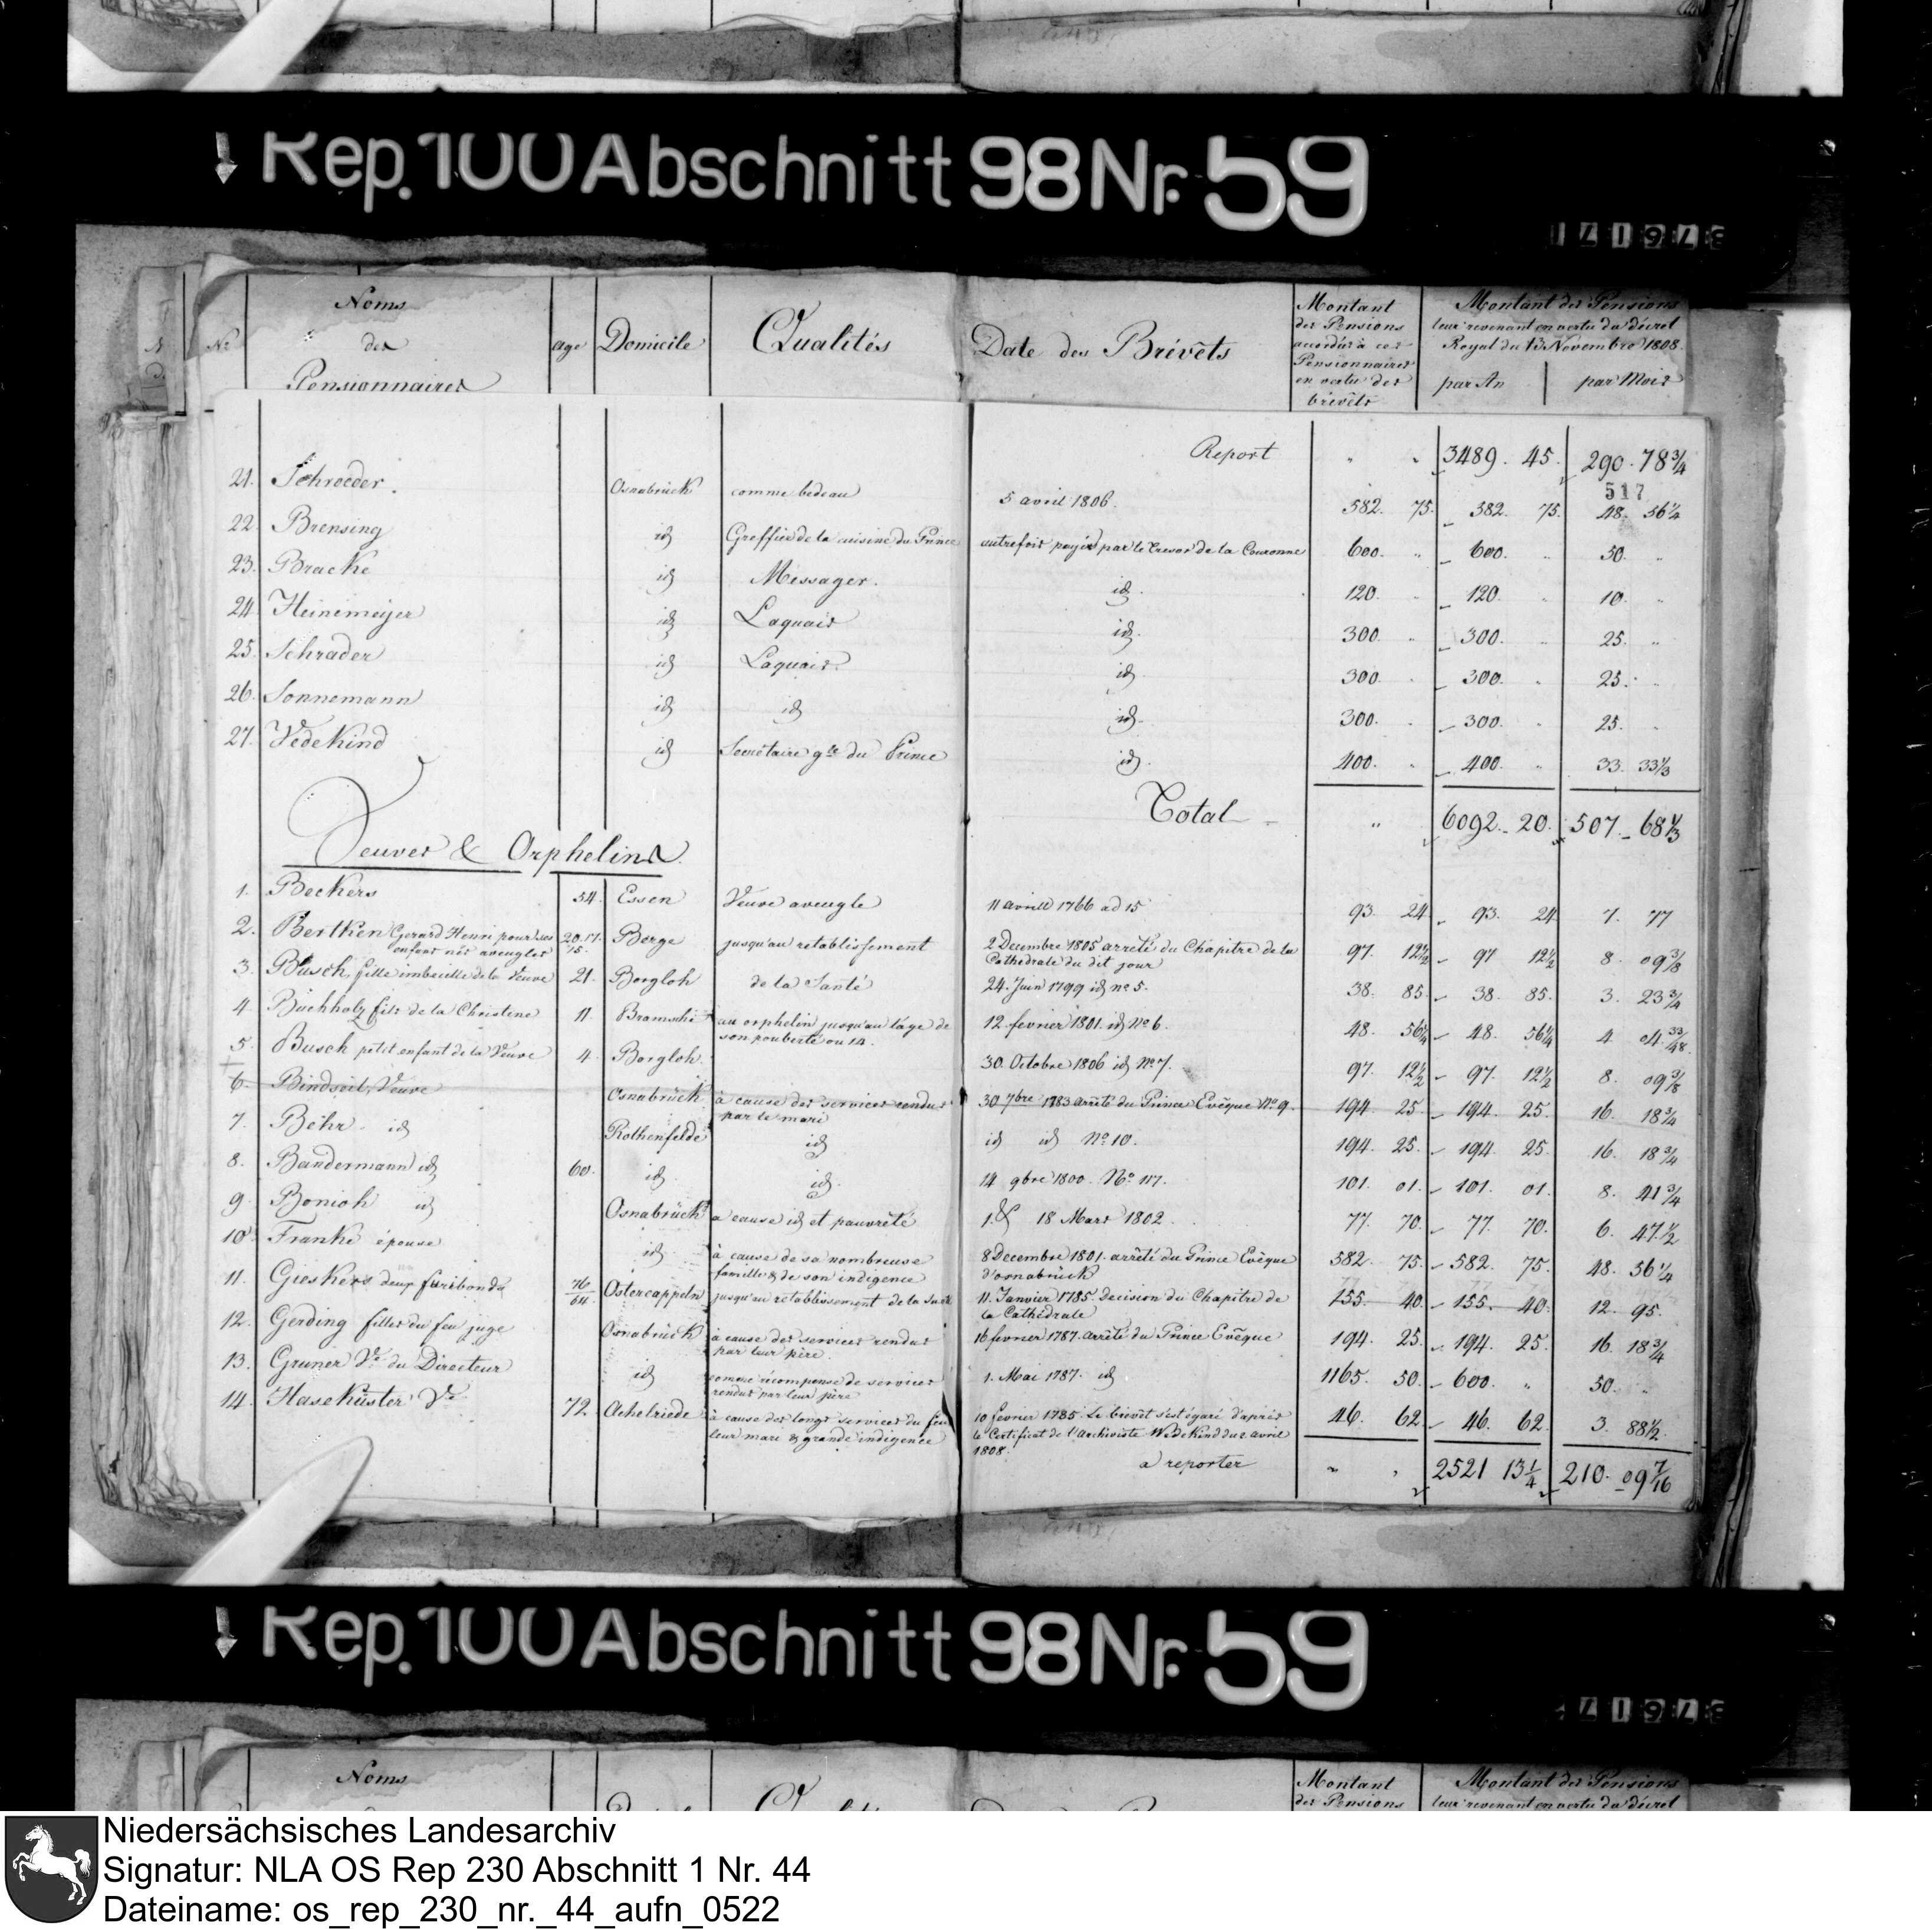 Rep. 100 Abschnitt 98 Nr. 59
Nº | Noms des Pensionnaires | age | Domicile | Qualités | Date des Brévêts | Montant des Pensions accordées à ces Pensionnaires en vertu des brévêts | Montant des Pensions leur revenant en vertu du décret Royal du 13 Novembre 1808. par An | par Mois
Report " " 3489. 45. 290. 78 3/4
517
21. Schroeder. Osnabrück comme bedeau 5 avril 1806. 582. 75. 582. 75. 48. 56 1/4
22. Brensing id Greffier de la cuisine du Prince autrefois payés par le Tresor de la Couronne 600. " 600. " 50. "
23. Bracke id Messager. id. 120. " 120. " 10. "
24. Heinemeijer id Laquais id. 300. " 300. " 25. "
25. Schrader id Laquais. id. 300. " 300. " 25. "
26. Sonnemann id id id. 300. " 300. " 25. "
27. Vedekind id Secrétaire gal du Prince id. 400. " 400. " 33. 33 1/3
Total " 6092. 20. 507. 68 1/3
Veuves & Orphelins.
1. Beckers 54. Essen Veuve aveugle 11 avrill 1766 ad 15 93. 24. 93. 24. 7. 77
2. Bertken Gerard Henri pour ses enfans nés aveugles 20. 17. 15. Berge jusqu'au retablissement 2 Decembre 1805 arrêté du Chapitre de la Cathedrale du dit jour 97. 12 1/2 97 12 1/2 8. 09 3/8
3. Busch, fille imbecille de la Veuve 21. Borgloh de la Santé 24. Juin 1799 id nº 5. 38. 85. 38. 85. 3. 23 3/4
4 Buchholz fils de la Christine 11. Bramsche au orphelin jusqu'au l'age de son pouberté ou 14. 12 fevrier 1801. id Nº 6. 48. 56 1/4 48. 56 1/4 4 04 33/48.
5. Busch petit enfant de la Veuve 4. Borgloh. 30. Octobre 1806 id Nº 7. 97. 12 1/2 97. 12 1/2 8. 09 3/8
6. Bindseil, Veuve Osnabrück à cause des services rendus par le mari 30 7bre 1783 arrêté du Prince Evêque Nº 9. 194. 25. 194. 25. 16. 18 3/4
7. Behr id Rothenfelde id id id Nº 10. 194. 25. 194. 25 16. 18 3/4
8. Bandermann id 60. id. id. 14 9bre 1800. Nº 117. 101. 01. 101. 01. 8. 41 3/4
9. Bonioh id Osnabrück a cause id et pauvrété 1. & 18 Mars 1802. 77. 70. 77. 70. 6. 47. 1/2
10. Franke épouse id. à cause de sa nombreuse famille & de son indigence 8 Decembre 1801. arrêté du Prince Evêque d'osnabrück 582. 75. 582. 75. 48. 56 1/4
11. Gieskers deux furibonds 76/64. Ostercappeln jusqu'au retablissement de la Santé 11. Janvier 1785 Decision du Chapitre de la Cathédrale 155. 40. 155. 40. 12. 95.
12. Gerding filles du feu juge Osnabrück à cause des services rendus par leur père. 16 fevrier 1787. arrêté du Prince Evêque 194. 25. 194. 25. 16. 18 3/4
13. Gruner Ve du Directeur id comme récompense de services rendus par leur père 1. Mai 1787. id 1165. 50. 600. " 50. "
14. Hasekuster Ve 72. Achelriede à cause des longs services du feu leur mari & grande indigence 10 fevrier 1785. Le brevêt s'est égaré d'après le Certificat de l'archiviste Wedekind du 2 avril 1808. 46. 62 46. 62 3. 88 1/2.
a reporter " " 2521 13 1/4 210. 09 7/16
Rep. 100 Abschnitt 98 Nr. 59
Noms
Montant des Pensions
Montant des Pensions leur revenant en vertu du décret
Niedersächsisches Landesarchiv
Signatur: NLA OS Rep 230 Abschnitt 1 Nr. 44
Dateiname: os_rep_230_nr._44_aufn_0522